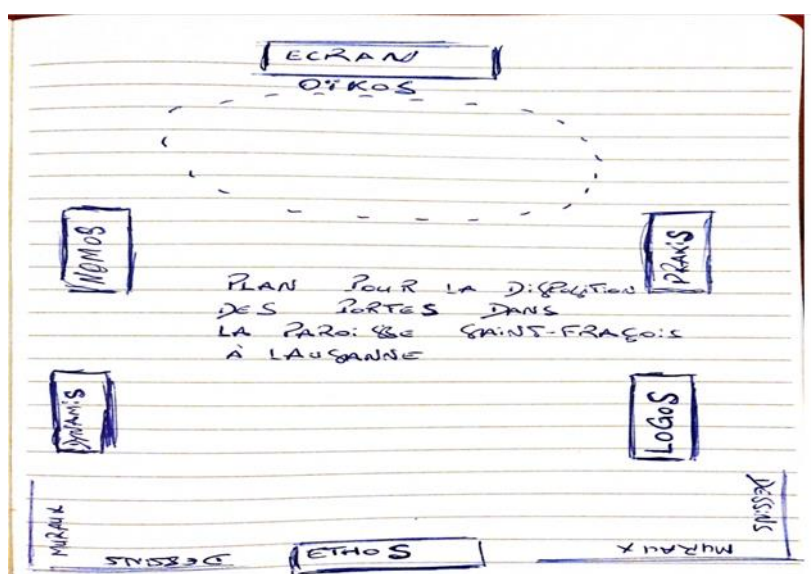 ECRAN
OÏKOS
NOMOS
PRAXIS
PLAN POUR LA DISPOSITION
DES PORTES DANS
LA PAROISSE SAINT-FRAÇOIS
À LAUSANNE
DYNAMIS
LOGOS
MURAUX
DESSINS
ETHOS
MURAUX
DESSINS